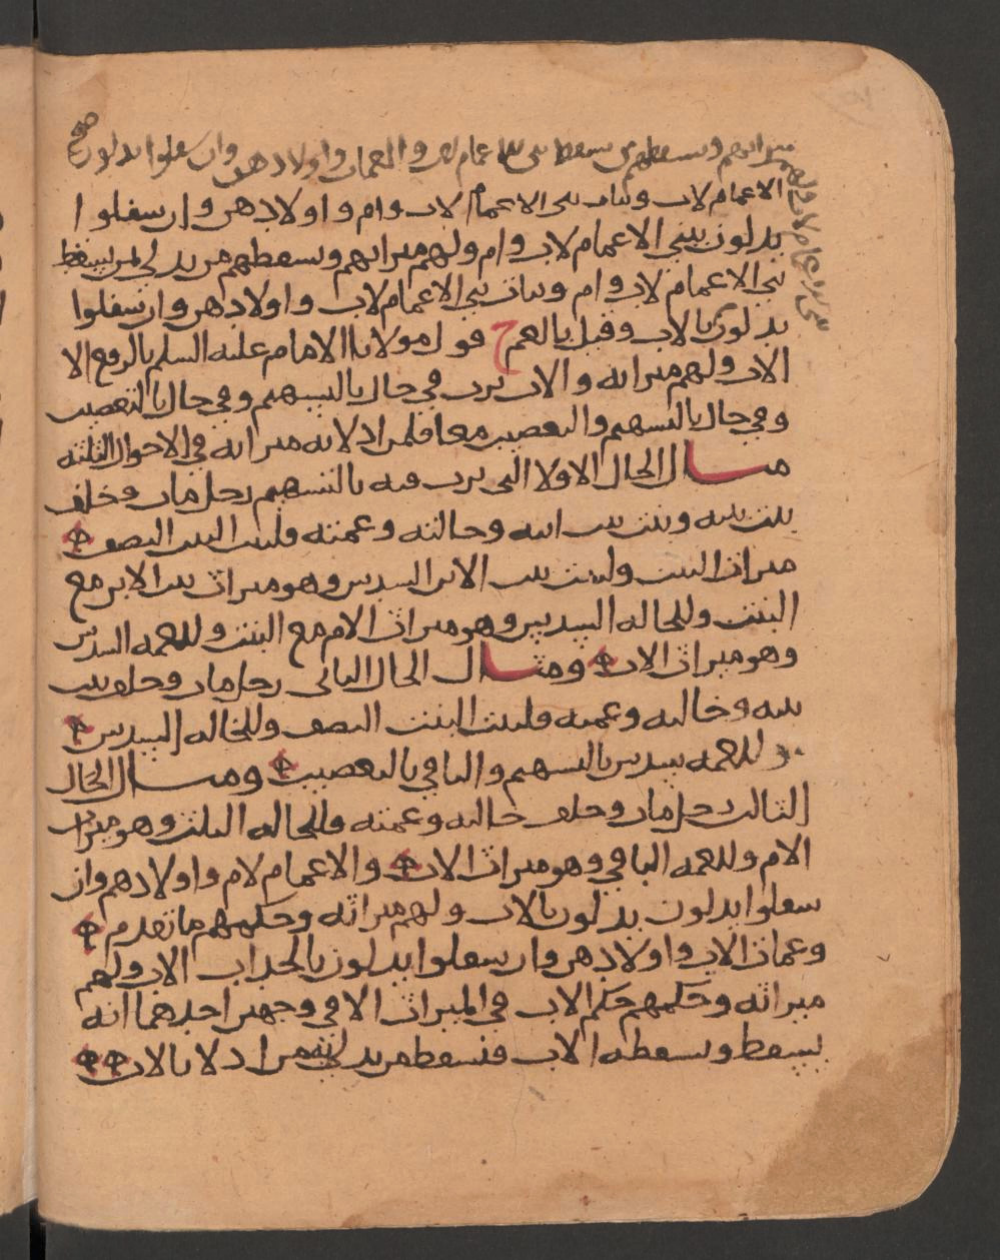 ميراثهم ويسقطهم من يسقط بني الاعمام لاب والعمات واولادهن وان سفلوا يدلون صح
الاعمام لاب وبنات بني الاعمام لاب وام واولادهن وان سفلوا
يدلون ببني الاعمام لاب وام ولهم ميراثهم ويسقطهم من يدلي بمن يسقط
بني الاعمام لاب وام وبنات بني الاعمام لاب واولادهن وان سفلوا
يدلون بالاب وقيل بالعم ح قول مولانا الامام عليه السلم بالرفع الا
الاب ولهم ميراثه والاب يرث في حال بالتسهيم وفي حال بالتعصيب
وفي حال بالتسهيم والتعصيب معا فلمن ادلا به ميراثه في الاحوال الثلثه
مثال الحال الاولا التي يرث فيه بالتسهيم رجل مات وخلف
بنت بنته وبنت بنت ابنه وخالته وعمته فلبنت البنت النصف
ميراث البنت ولبنت بنت الابن السدس وهو ميراث بنت الابن مع
البنت وللخاله السدس وهو ميراث الام مع البنت وللعمه السدس
وهو ميراث الاب ومثال الحال الثاني رجل مات وخلف بنت
بنته وخالته وعمته فلبنت البنت النصف وللخاله السدس
وللعمه سدس بالتسهيم والباقي بالتعصيب ومثال الحال
الثالث رجل مات وخلف خالته وعمته فللخاله الثلث وهو ميراث
الام وللعمه الباقي وهو ميراث الاب والاعمام لام واولادهم وان
سفلوا يدلون بالاب ولهم ميراثه وحكمهم ما تقدم
وعمات الاب واولادهن وان سفلوا يدلون بالجد اب الاب ولهم
ميراثه وحكمهم حكم الاب في الميراث الا في وجهين احدهما انه
يسقط ويسقطه الاب فنسقط من يدلي به بمن ادلا بالاب